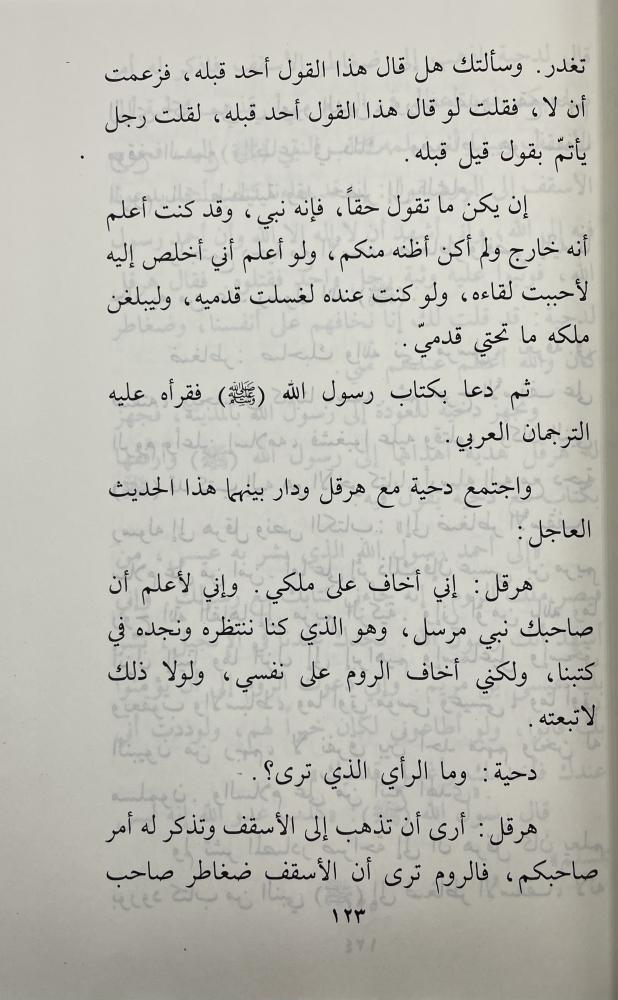 تغدر. وسألتك هل قال هذا القول أحد قبله، فزعمت
أن لا، فقلت لو قال هذا القول أحد قبله، لقلت رجل
يأتمّ بقول قيل قبله.
إن يكن ما تقول حقاً، فإنه نبي، وقد كنت أعلم
أنه خارج ولم أكن أظنه منكم، ولو أعلم أني أخلص إليه
لأحببت لقاءه، ولو كنت عنده لغسلت قدميه، وليبلغن
ملكه ما تحتي قدميّ.
ثم دعا بكتاب رسول الله (ﷺ) فقرأه عليه
الترجمان العربي.
واجتمع دحية مع هرقل ودار بينهما هذا الحديث
العاجل:
هرقل: إني أخاف على ملكي. وإني لأعلم أن
صاحبك نبي مرسل، وهو الذي كنا ننتظره ونجده في
كتبنا، ولكني أخاف الروم على نفسي، ولولا ذلك
لاتبعته.
دحية: وما الرأي الذي ترى؟.
هرقل: أرى أن تذهب إلى الأسقف وتذكر له أمر
صاحبكم، فالروم ترى أن الأسقف ضغاطر صاحب
١٢٣